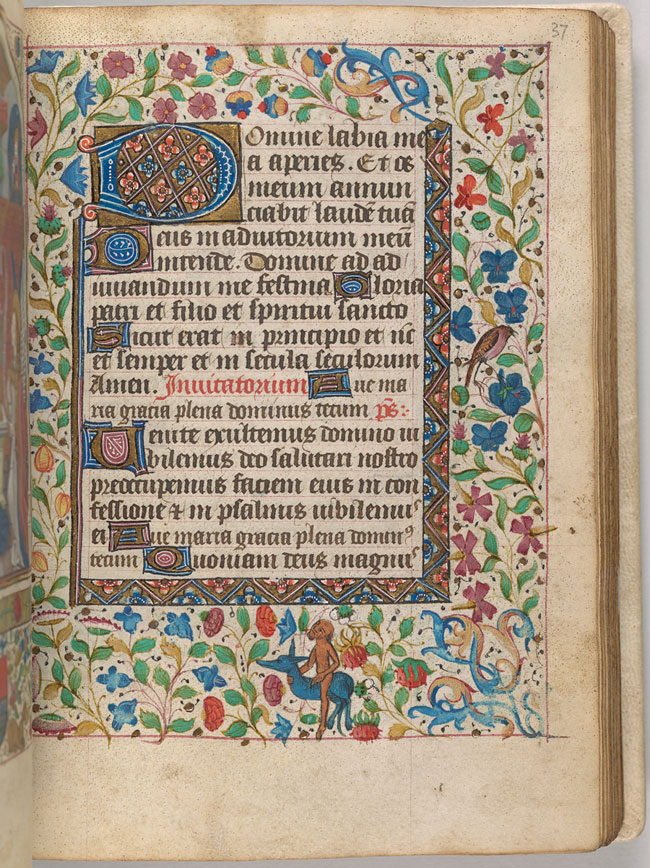 37
Domine labia me
a aperies. Et os
meum annun
ciabit laudē tuā
Deus in adiutorium meū
intende. Domine ad ad
iuuandum me festina Gloria
patri et filio et spiritui sancto
Sicut erat in principio et nc̄
et semper et in secula seculorum
Amen. Inuitatorium Aue ma
ria gracia plena dominus tecum p̄s:
Uenite exultemus domino iu
bilemus deo salutari nostro
preoccupemus faciem eius in con
fessione & in psalmis iubilemꝰ
ei Aue maria gracia plena dominꝰ
tecum Quoniam deus magnꝰ